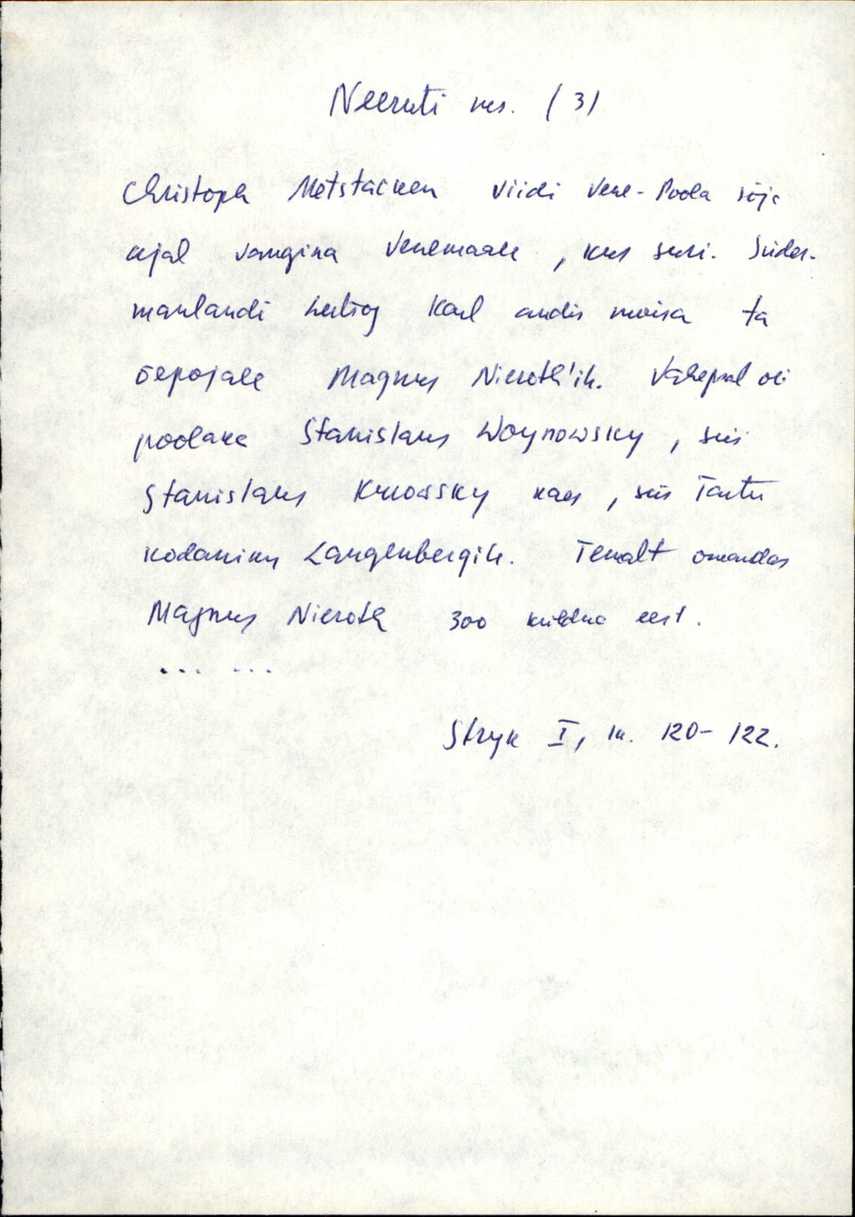 Neeruti ms. (3)
Christoph Metstacken viidi Vene-Poola sõja
ajal vangina Venemaale, kus suri. Süder-
manlandi hertsog Karl andis mõisa ta
õepojale Magnus Nieroth'ile. Vahepeal oli
poolaka Stanislaus Woynowsky, siis
Stanislaus käes, siis Tartu
kodaniku Langenbergile. Temalt omandas
Magnus Nieroth 300 kuldna eest.
... ...
Stryk I, lk. 120-122.